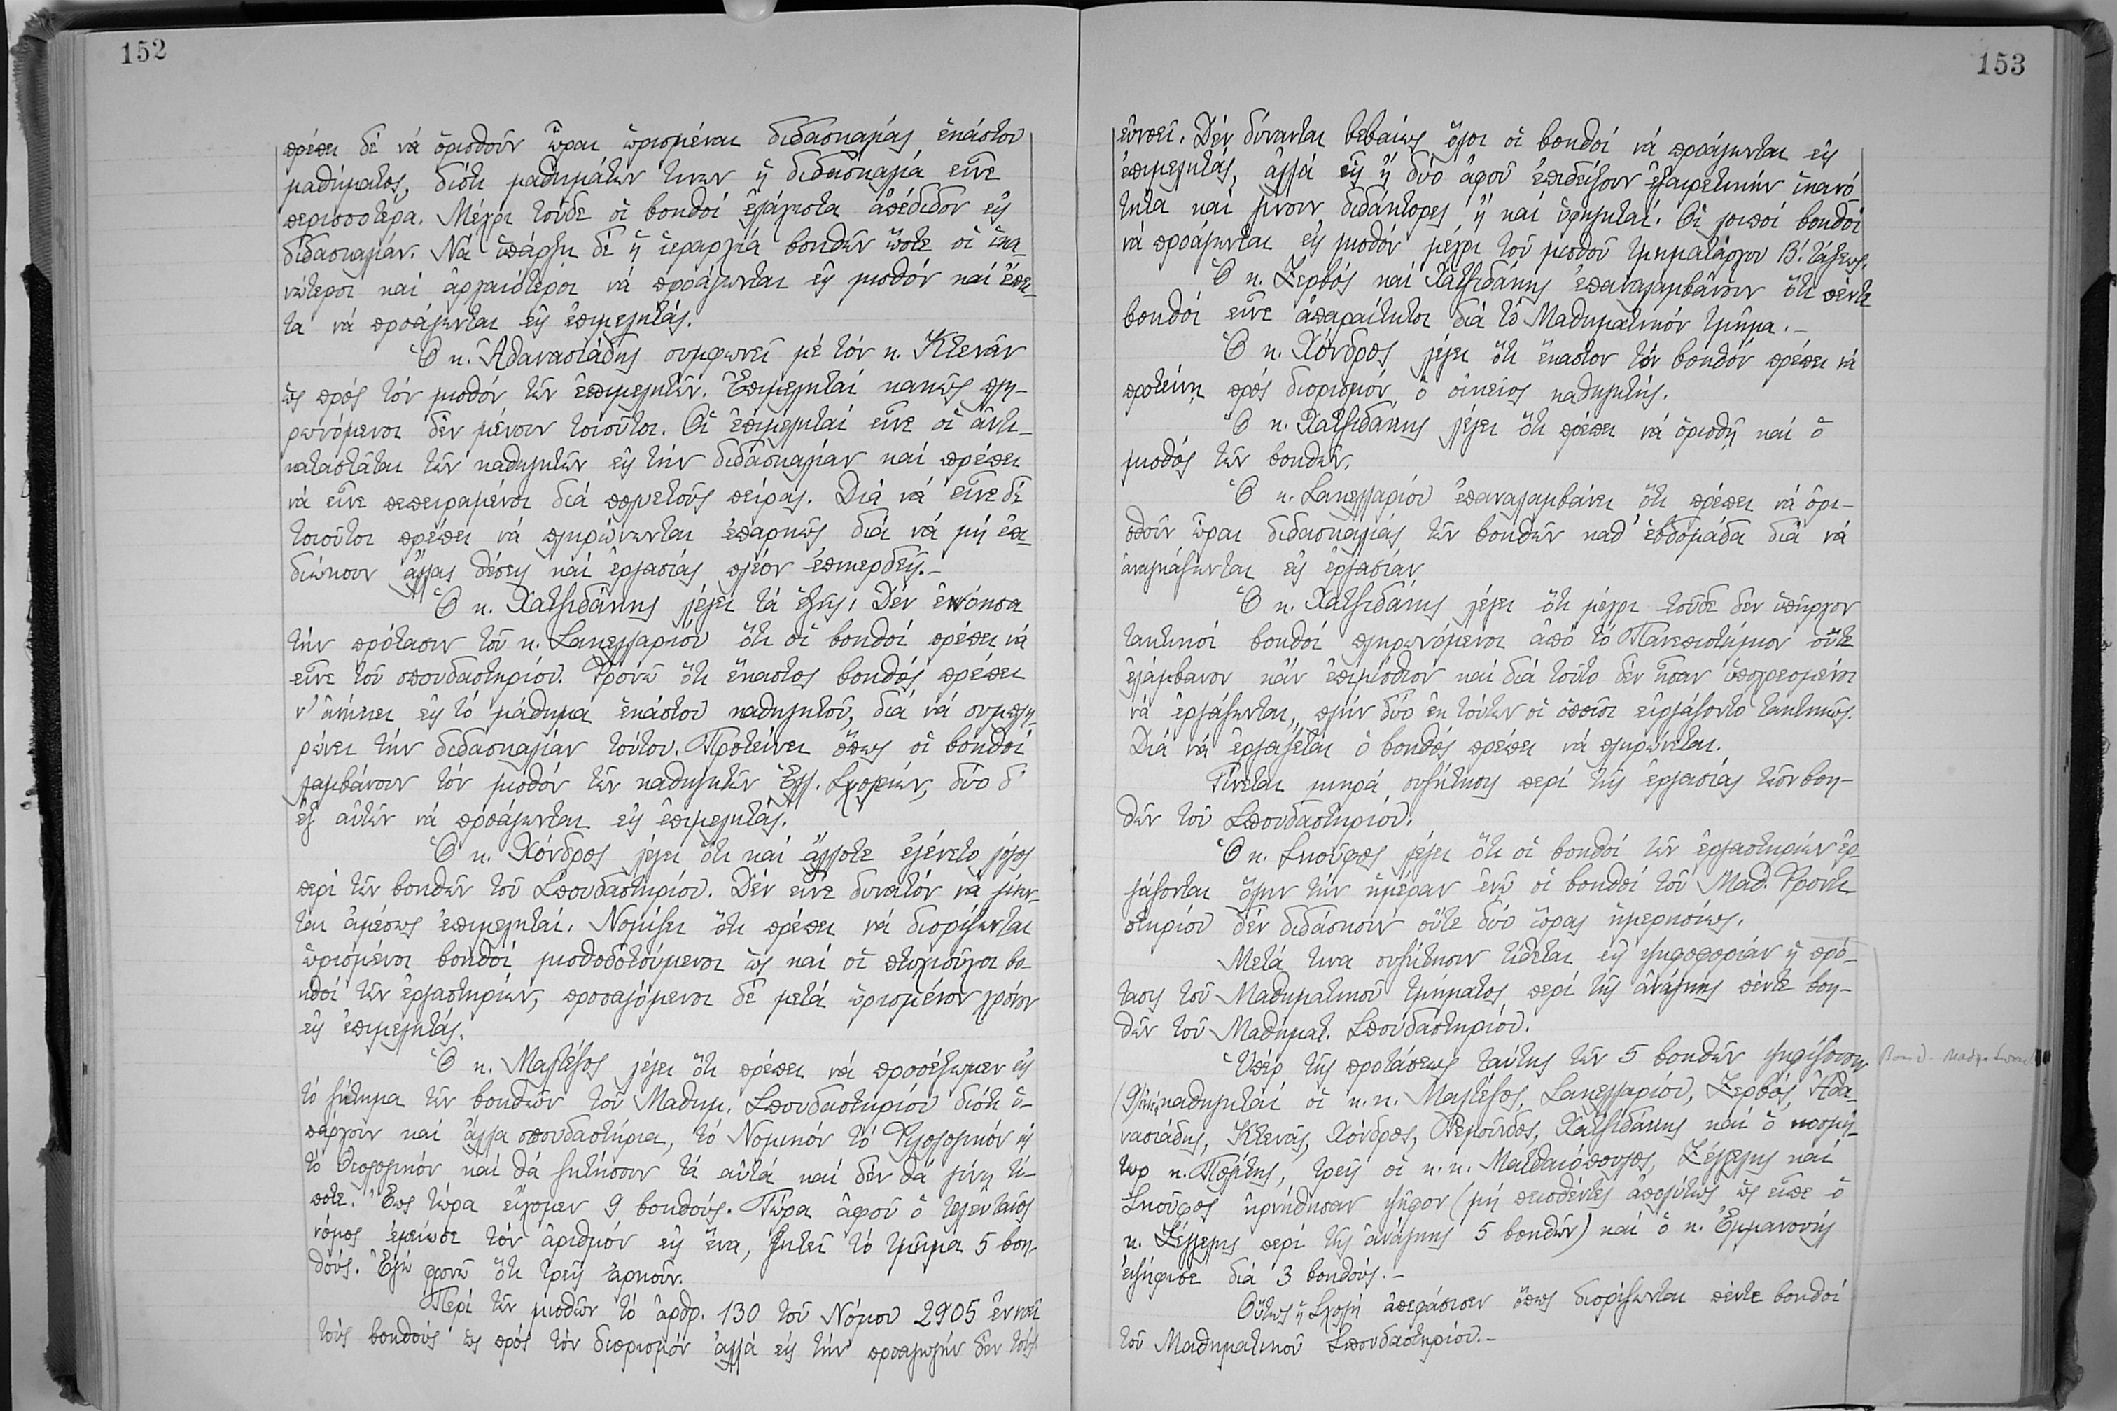 152
πρέπει δέ νά ὁρισθοῦν ὧραι ὡρισμέναι διδασκαλίας ἑκάστου
μαθήματος, διότι μαθημάτων τινων ἡ διδασκαλία εἶνε
περισσοτέρα. Μέχρι τοῦδε οἱ βοηθοί ἐλάχιστα ἀπέδιδον εἰς
διδασκαλίαν. Νά ὑπάρχῃ δέ ἡ ἱεραρχία βοηθῶν ὥστε οἱ ἱκα-
νώτεροι καί ἀρχαιότεροι νά προάγωνται εἰς μισθόν καί ἔπει-
τα νά προάγωνται εἰς ἐπιμελητάς.
Ὁ κ. Ἀθανασιάδης συμφωνεῖ μέ τόν κ. Κτενᾶν
ὡς πρός τόν μισθόν τῶν ἐπιμελητῶν. Ἐπιμεληταί κακῶς πλη-
ρωνόμενοι δέν μένουν τοιοῦτοι. Οἱ ἐπιμεληταί εἶνε οἱ ἀντι-
καταστάται τῶν καθηγητῶν εἰς τήν διδασκαλίαν καί πρέπει
νά εἶνε πεπειραμένοι διά πολυετοῦς πείρας. Διά νά εἶνε δέ
τοιοῦτοι πρέπει νά πληρώνωνται ἐπαρκῶς διά νά μή ἐπι-
διώκουν ἄλλας θέσεις καί ἐργασίας πλέον ἐπικερδεῖς.-
Ὁ κ. Χατζιδάκης λέγει τά ἑξῆς: Δέν ἐνόησα
τήν πρότασιν τοῦ κ. Σακελλαρίου ὅτι οἱ βοηθοί πρέπει νά
εἶνε τοῦ σπουδαστηρίου. Φρονῶ ὅτι ἕκαστος βοηθός πρέπει
ν' ἀνήκει εἰς τό μάθημα ἑκάστου καθηγητοῦ, διά νά συμπλη-
ρώνει τήν διδασκαλίαν τούτου. Προτείνει ὅπως οἱ βοηθοί
λαμβάνουν τόν μισθόν τῶν καθηγητῶν Ἑλλ. Σχολείων, δύο δ'
ἐξ αὐτῶν νά προάγωνται εἰς ἐπιμελητάς.
Ὁ κ. Χόνδρος λέγει ὅτι καί ἄλλοτε ἐγένετο λόγος
περί τῶν βοηθῶν τοῦ Σπουδαστηρίου. Δέν εἶνε δυνατόν νά γίνων-
ται ἀμέσως ἐπιμεληταί. Νομίζει ὅτι πρέπει νά διορίζωνται
ὡρισμένοι βοηθοί μισθοδοτούμενοι ὡς καί οἱ πτυχιοῦχοι βο-
ηθοί τῶν ἐργαστηρίων, προαγόμενοι δέ μετά ὡρισμένον χρόνον
εἰς ἐπιμελητάς.
Ὁ κ. Μαλτέζος λέγει ὅτι πρέπει νά προσέξωμεν εἰς
τό ζήτημα τῶν βοηθῶν τοῦ Μαθημ. Σπουδαστηρίου διότι ὑ-
πάρχουν καί ἄλλα σπουδαστήρια, τό Νομικόν τό Φιλολογικόν εἰς
τό Θεολογικόν καί θά ζητήσουν τά αὐτά καί δέν θά γίνῃ τί-
ποτε. Ἕως τώρα εἴχομεν 9 βοηθούς. Τώρα ἀφοῦ ὁ τελευταῖος
νόμος ἐμείωσε τόν ἀριθμόν εἰς ἕνα, ζητεῖ τό τμῆμα 5 βοη-
θούς. Ἐγώ φρονῶ ὅτι τρεῖς ἀρκοῦν.
Περί τῶν μισθῶν τό ἄρθρ. 130 τοῦ Νόμου 2905 ἐννοεῖ
τούς βοηθούς ὡς πρός τόν διορισμόν ἀλλά εἰς τήν προαγωγήν δέν τούς
153
εὐνοεῖ. Δέν δύνανται βεβαίως ὅλοι οἱ βοηθοί νά προάγωνται εἰς
ἐπιμελητάς, ἀλλά εἷς ἤ δύο ἀφοῦ ἐπιδείξουν ἐξαιρετικήν ἱκανό
τητα καί γίνουν διδάκτορες ἤ καί ὑφηγηταί. Οἱ λοιποί βοηθοί
νά προάγωνται εἰς μισθόν μέχρι τοῦ μισθοῦ τμηματάρχου Β΄. τάξεως.
Ὁ κ. Ζερβός καί Χατζιδάκης ἐπαναλαμβάνουν ὅτι πέντε
βοηθοί εἶνε ἀπαραίτητοι διά τό Μαθηματικόν τμῆμα.-
Ὁ κ. Χόνδρος λέγει ὅτι ἕκαστον τόν βοηθόν πρέπει νά
προτείνῃ πρός διορισμόν ὁ οἰκεῖος καθηγητής.
Ὁ κ. Χατζιδάκης λέγει ὅτι πρέπει νά ὁρισθῇ καί ὁ
μισθός τῶν βοηθῶν.
Ὁ κ. Σακελλαρίου ἐπαναλαμβάνει ὅτι πρέπει νά ὁρι-
σθοῦν ὧραι διδασκαλίας τῶν βοηθῶν καθ' ἑβδομάδα διά νά
ἀναγκάζωνται εἰς ἐργασίαν
Ὁ κ. Χατζιδάκις λέγει ὅτι μέχρι τοῦδε δέν ὑπῆρχον
τακτικοί βοηθοί πληρωνόμενοι ἀπό τό Πανεπιστήμιον οὔτε
ἐλάμβανον κἄν ἐπιμίσθιον καί διά τοῦτο δέν ἦσαν ὑποχρεωμένοι
νά ἐργάζωνται, πλήν δύο ἐκ τούτων οἱ ὁποῖοι εἰργάζοντο τακτικῶς.
Διά νά ἐργάζεται ὁ βοηθός πρέπει νά πληρώνεται.
Γίνεται μικρά συζήτησις περί τῆς ἐργασίας τῶν βοη-
θῶν τοῦ Σπουδαστηρίου.
Ὁ κ. Σκοῦφος λέγει ὅτι οἱ βοηθοί τῶν ἐργαστηρίων ἐρ-
γάζονται ὅλην τήν ἡμέραν ἐνῷ οἱ βοηθοί τοῦ Μαθ. Φροντι
στηρίου δέν διδάσκουν οὔτε δύο ὥρας ἡμερησίως.
Μετά τινα συζήτησιν τίθεται εἰς ψηφοφορίαν ἡ πρό-
τασις τοῦ Μαθηματικοῦ τμήματος περί τῆς ἀνάγκης πέντε βοη-
θῶν τοῦ Μαθηματ. Σπουδαστηρίου.
Ὑπέρ τῆς προτάσεως ταύτης τῶν 5 βοηθῶν ψηφίζουσιν
καθηγηταί οἱ κ.κ. Μαλτέζος, Σακελλαρίου, Ζερβός, Ἀθα-
νασιάδης, Κτενᾶς, Χόνδρος, Ρεμοῦνδος, Χατζιδάκης καί ὁ κοσμή-
τωρ κ. Πολίτης, τρεῖς οἱ κ.κ. Ματθαιόπουλος, Ζέγγελης καί
Σκοῦφος ἠρνήθησαν ψῆφον (μή πεισθέντες ἀπολύτως ὡς εἶπε ὁ
κ. Ζέγγελης περί τῆς ἀνάγκης 5 βοηθῶν) καί ὁ κ. Ἐμμανουήλ
ἐψήφισε διά 3 βοηθούς.-
Οὕτως ἡ Σχολή ἀπεφάσισεν ὅπως διορίζωνται πέντε βοηθοί
τοῦ Μαθηματικοῦ Σπουδαστηρίου.-